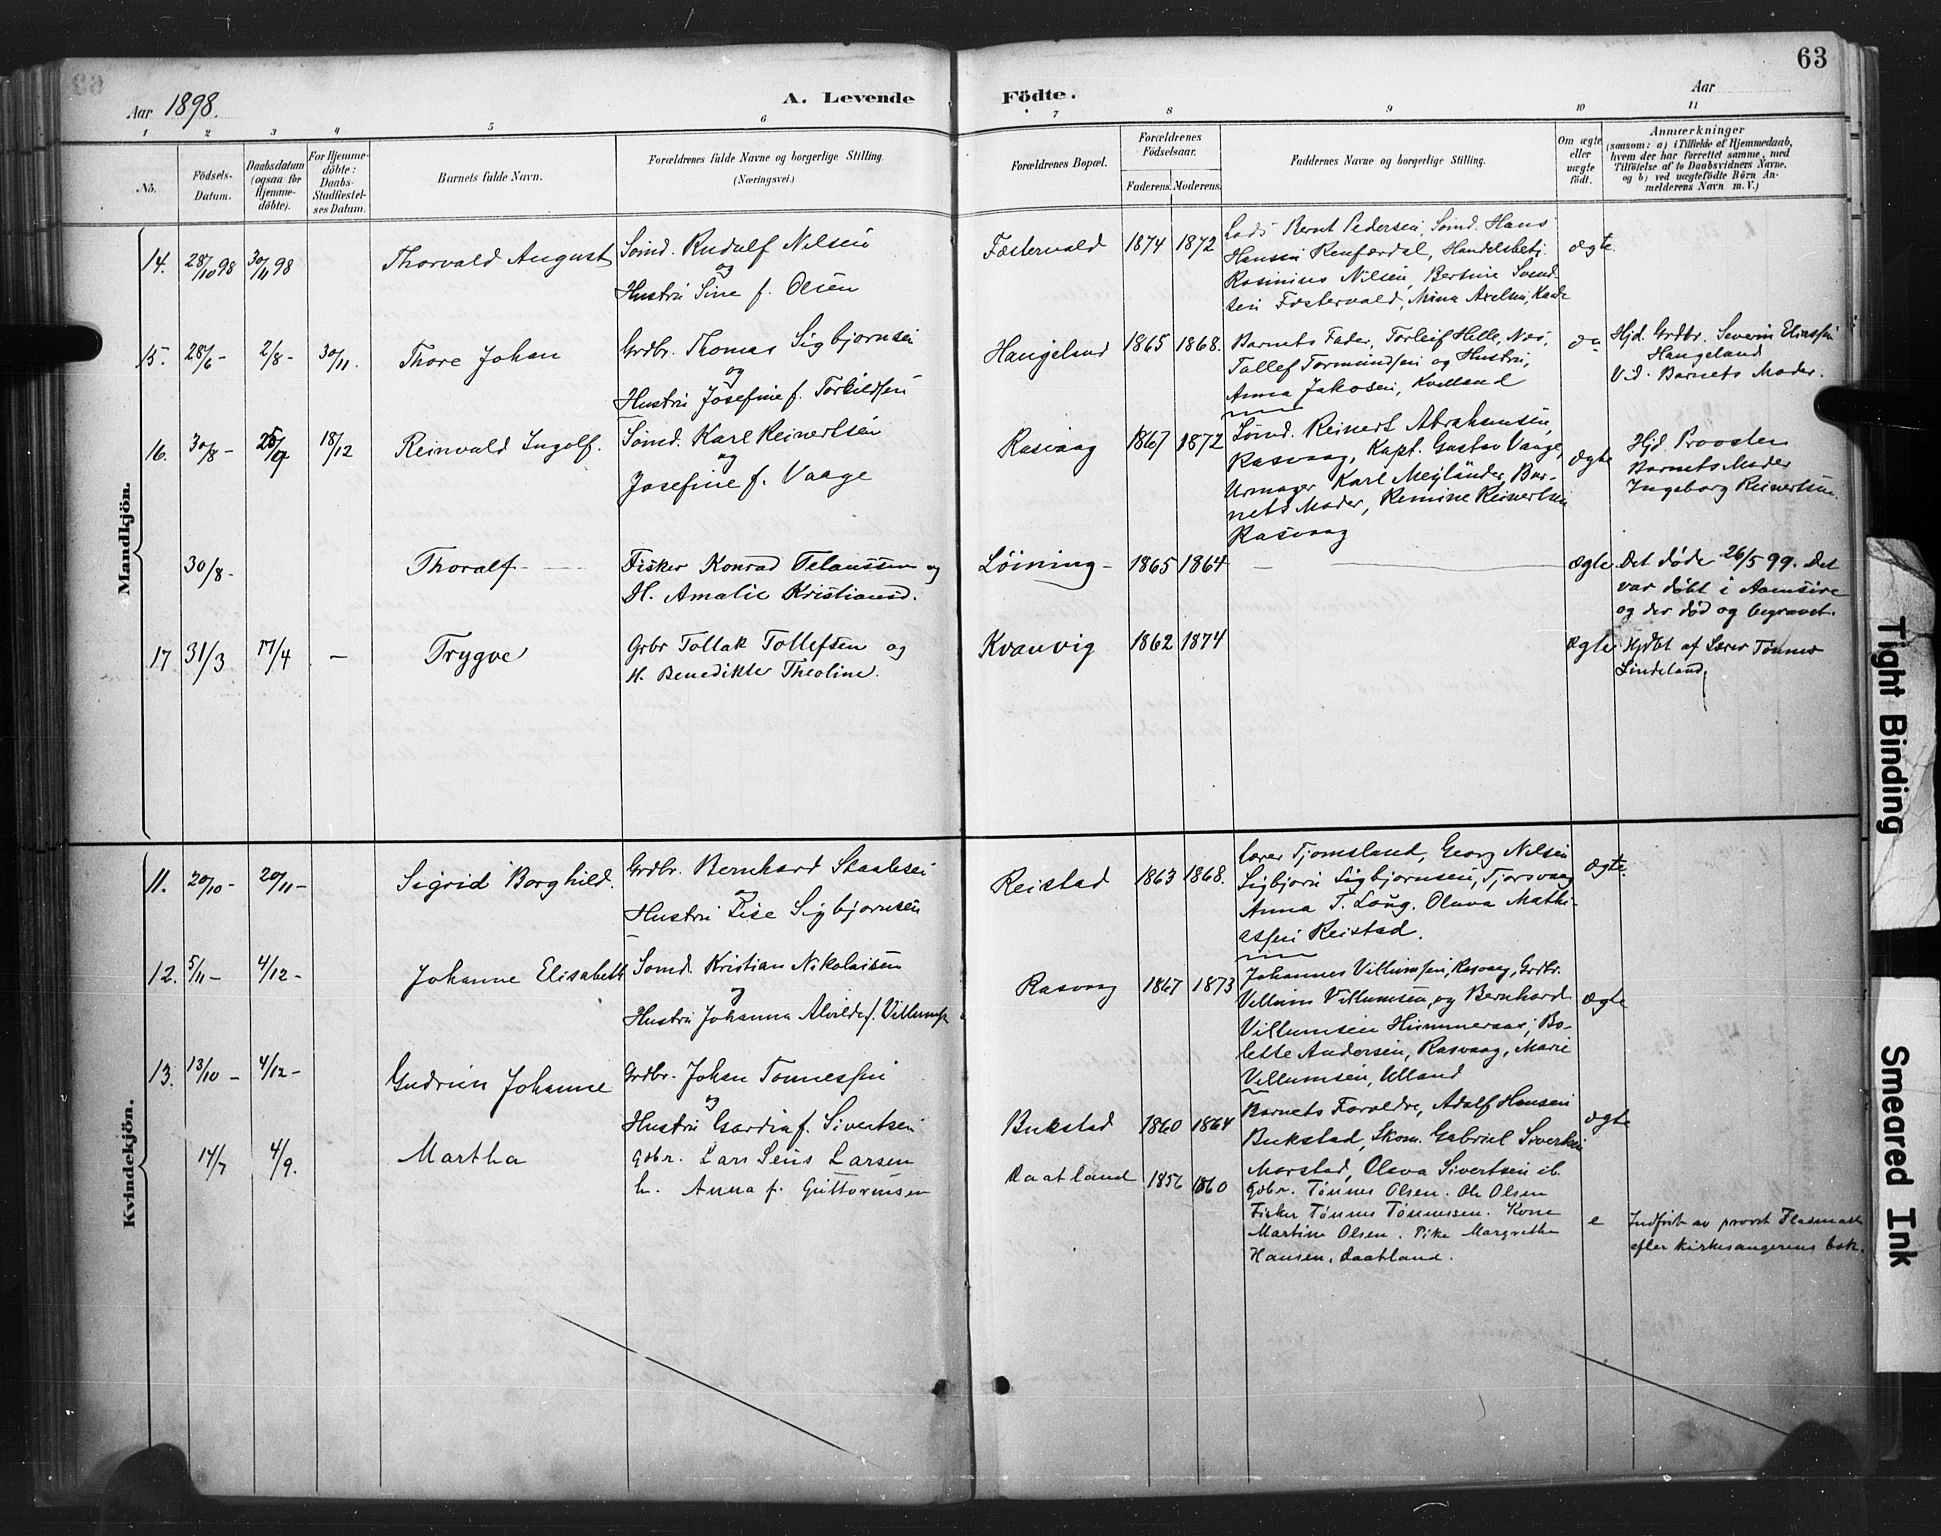 63
Aar 1898.
A. Levende Födte.
Aar
1 2 3 4 5 6 7 8 9 10 11
No.
Födsels-Datum.
Daabsdatum (ogsaa for Hjemme-döbte).
For Hjemme-döbte: Daabs-Stadfæstel-ses Datum.
Barnets fulde Navn.
Forældrenes fulde Navne og borgerlige Stilling.
(Næringsvei.)
Forældrenes Bopæl.
Forældrenes Födselsaar.
Faderens. Moderens.
Faddernes Navne og borgerlige Stilling.
Om ægte eller uægte födt.
Anmærkninger
(saasom: a) i Tilfælde af Hjemmedaab,
hvem der har forrettet samme, med
Tilföielse af to Daabsvidners Navne,
og b) ved uægtefödte Börn An-
melderens Navn m. V.)
Mandkjön.
14. 28/10 98 30/11 98 Thorvald August
Sømd. Rudolf Nilsen
og
Hustru Sine f. Olsen
Fæstervold 1874 1872
Bernt Pedersen, Sømd. Hans
Hansen Renfærdal, Handelsbetj.
Rasinius Nilsen, Bertine Svend-
sen Fæstervold, Mina Axelsen,
ægte
15. 28/6 - 2/8 - 30/11. Thore Johan
Grdbr. Thomas Sigbjørnsen
og
Hustru Josefine f. Torkildsen
Haugeland 1865 1868.
Barnets Fader, Torleif Hille, Næs,
Tollef Tormundsen og Hustru,
Anna Jakobsen, Kvelland
do
Hjd. Grdbr. Severin Eliassen
Haugeland
Vid. Barnets Moder.
16. 30/8 - 18/12 Reinvald Ingolf.
Sømd. Karl Reinertsen
og
Josefine f. Vaage
Rasvaag 1867 1872
Sømd. Reinert Abrahamsen,
Rasvaag, Kapt. Gustav Vaage,
Urmager Karl Meyländer, Bar-
nets Moder, Remine Reinertsen
Rasvaag
ægte
Hjd. Provsten
Barnets Moder
Ingeborg Reinertsen.
30/8 - Thoralf
Fisker Konrad Telaussen og
H. Amalie Kristiansd.
Løining - 1865 1864
ægte.
Det døde 26/5 99. Det
var døbt i Aamsire
og der død og begravet.
17 31/3 17/4 - Trygve
Grbr Tollak Tollefsen og
H. Benedikte Theoline.
Kvanvig 1862 1874
ægte
Hjdbt af Lærer Tønnes
Lindeland,
Kvindekjön.
11. 20/10 - 20/11 - Sigrid Borghild.
Grdbr. Bernhard Staalesen
og
Hustru Lise Sigbjørnsen
Reistad 1863 1868.
Lærer Tjomsland, Georg Nilsen
Sigbjørn Sigbjørnsen, Tjorsvaag
Anna T. Loug. Olava Mathi-
assen Reistad.
ægte.
12. 5/11 - 4/12 - Johanne Elisabeth
Sømd. Kristian Nikolaisen
og
Hustru Johanna Alvilde f. Villums
Rasvaag 1867 1873
Johannes Villumsen, Rasvaag, Grdbr.
Villum Villumsen, og Bernhard
Villumsen Hummeraas; Bo-
lette Andersen, Rasvaag, Marie
Villumsen, Ulland
ægte
13. 13/10 - 4/12 - Gudrun Johanne
Grdbr. Johan Tønnessen
og
Hustru Gardia f. Sivertsen
Bukstad 1860 1864
Barnets Forældre, Adolf Hansen
Bukstad, Skom. Gabriel Sivertsen
Marstad, Olava Sivertsen ib.
ægte
14/7 4/9. Martha
Gdbr. Lars Jens Larsen
h. Anna f. Guttormsen
Daatland 1856 1860
Gdbr. Tønnes Olsen. Ole Olsen
Fisker Tønnes Tønnessen. Kone
Martine Olsen. Pike Margrethe
Hansen, Daatland.
e
Indført av provst Flesmark
efter kirkesangerens bok.
Tight Binding
Smeared Ink